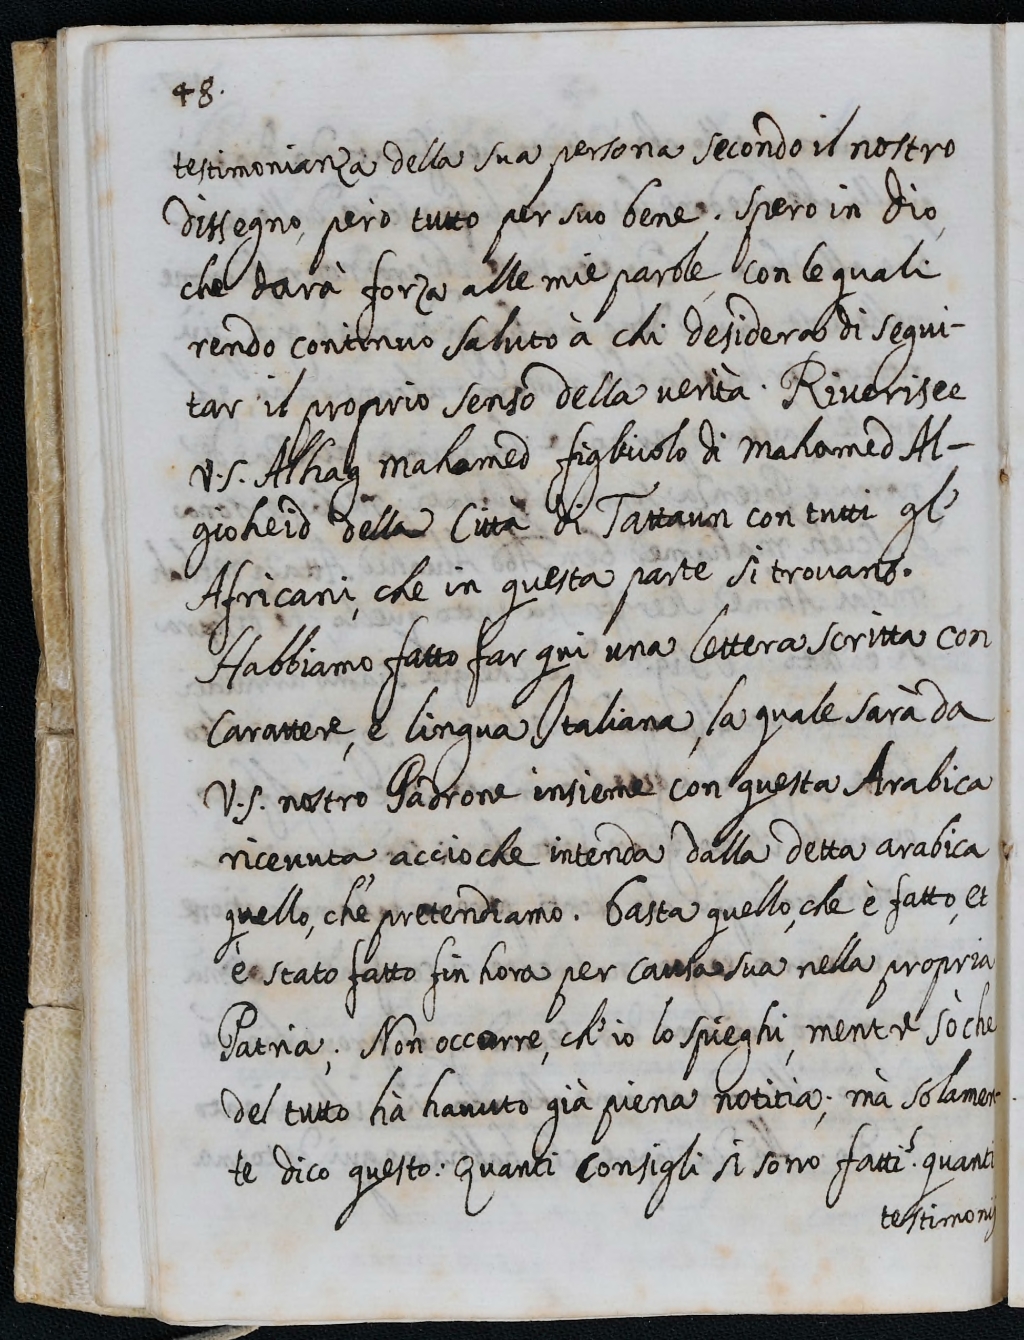 48.
testimonianza della sua persona secondo il nostro
dissegno, però tutto per suo bene. Spero in dio,
che darà forza alle mie parole, con le quali
rendo continuo saluto à chi desidera di segui-
tar il proprio senso della verità. Riverisce
V.S. Alhag mahamed figliuolo di mahamed Al-
gioheid della Città di Tattaun con tutti gl'
Africani, che in questa parte si trovano.
Habbiamo fatto far qui una lettera scritta con
Carattere, e lingua Italiana, la quale sarà da
V.S. nostro Padrone insieme con questa Arabica
ricevuta accioche intenda dalla detta arabica
quello, che pretendiamo. basta quello, che è fatto, et
è stato fatto fin hora per causa sua nella propria
Patria,. Non occorre, ch'io lo spieghi, mentre sò che
del tutto hà havuto già piena notitia; mà solamen-
te dico questo: Quanti Consigli si sono fatti? quanti
testimonij